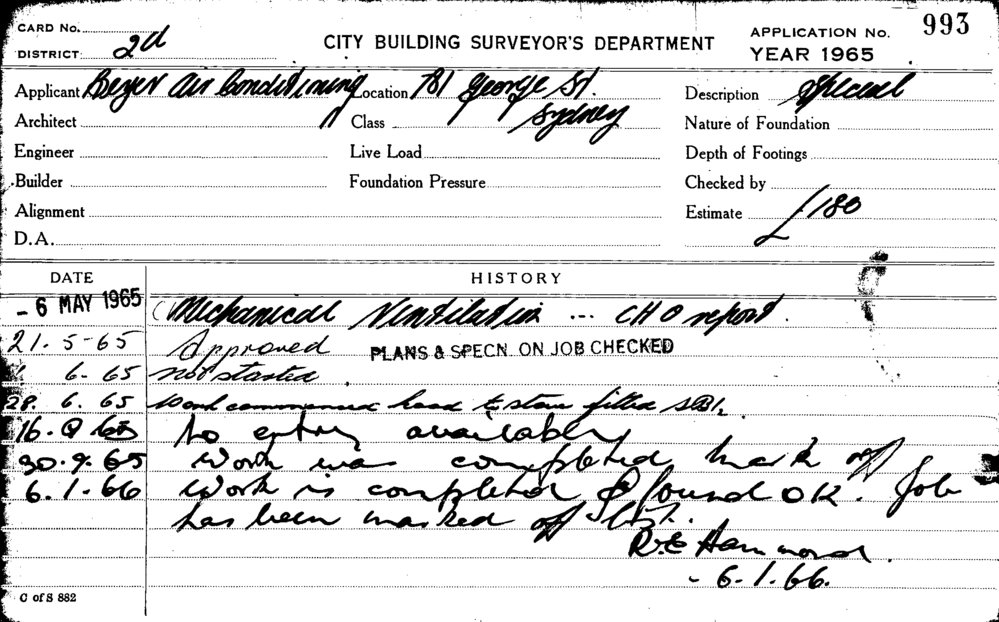 CARD No. 993
DISTRICT 2d CITY BUILDING SURVEYOR'S DEPARTMENT APPLICATION No.
YEAR 1965
Applicant Beyer Air Conditioning Location 781 George St. Description Special
Architect Class Sydney Nature of Foundation
Engineer Live Load Depth of Footings
Builder Foundation Pressure Checked by
Alignment Estimate £180
D.A.
DATE HISTORY
- 6 MAY 1965 Mechanical Ventilation ... CHO report.
21. 5-65 Approved PLANS & SPECN. ON JOB CHECKED
6. 65 Not started
28. 6. 65 Work commenced hood to stove fitted
16. 9 65 No entry available
30. 9. 65 Work was completed mark off
6. 1. 66 Work is completed & found OK. Job
has been marked off list.
R.E Hammond.
- 6. 1. 66.
C of S 882